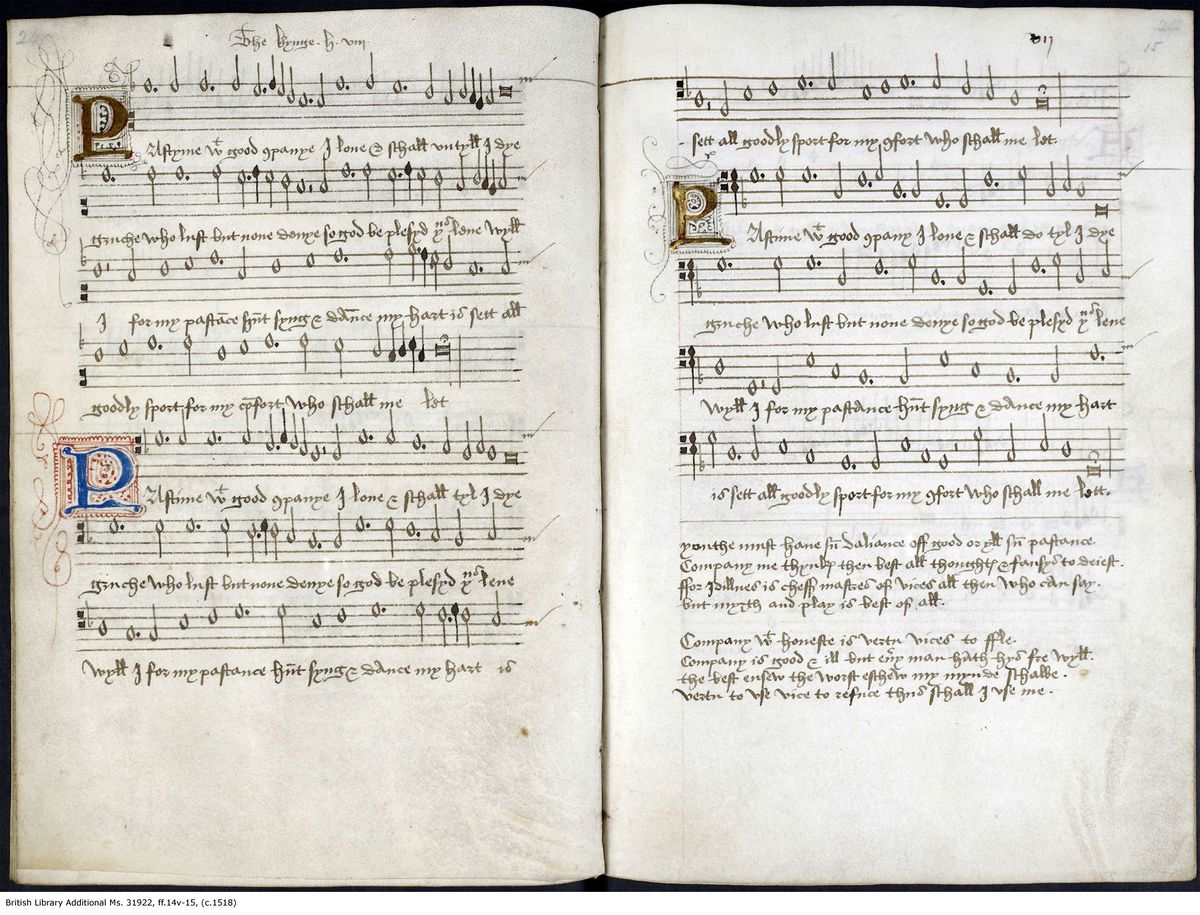 The kynge .h. viii
PAstyme wt good 9panye I love & schall untyll I dye
gruche who lust but none denye so god be plesyd yus leve wyll
I for my pastace hūt syng & dāce my hart is sett all
goodly sport for my cōfort who schall me let
PAstime wt good 9panye I love & schall tyl I dye
gruche who lust but none denye so god be plesyd yus leve
wyll I for my pastance hūt syng & dance my hart is
15
sett all goodly sport for my 9fort who schall me let.
PAstime wt good 9pany I love & schall do tyl I dye
gruche who lust but none denye so god be plesyd yus leve
wyll I for my pastance hūt syng & dance my hart
is sett all goodly sport for my 9fort who schall me lett.
youthe must have sū daliance off good or yll sū pastance.
Company me thynks then best all thoughts & fansys to deiest.
ffor Idillnes is cheff mastres of vices all then who can say.
but myrth and play is best of all.
Company wt honeste is vertu vices to ffle.
Company is good & ill but evry man hath hys fre wyll.
the best ensew the worst eschew my mynde schalbe.
vertu to use vice to refuce thus schall I use me.
British Library Additional Ms. 31922, ff.14v-15, (c.1518)